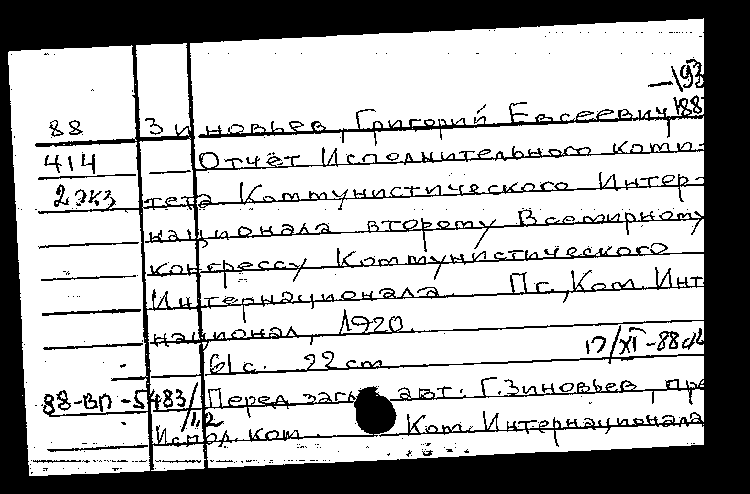 —193
88 Зиновьев, Григорий Евсеевич, 188
414 Отчёт Исполнительного коми-
2 экз тета Коммунистического Интер-
национала второму Всемирному
конгрессу Коммунистического
Интернационала Пг., Ком. Инт
национал, 1920.
61 с. 22 cm 17/XI-88
88-ВП-5483/1,2 Перед загл авт. Г. Зиновьев, пре
Испол. ком. Ком. Интернационала